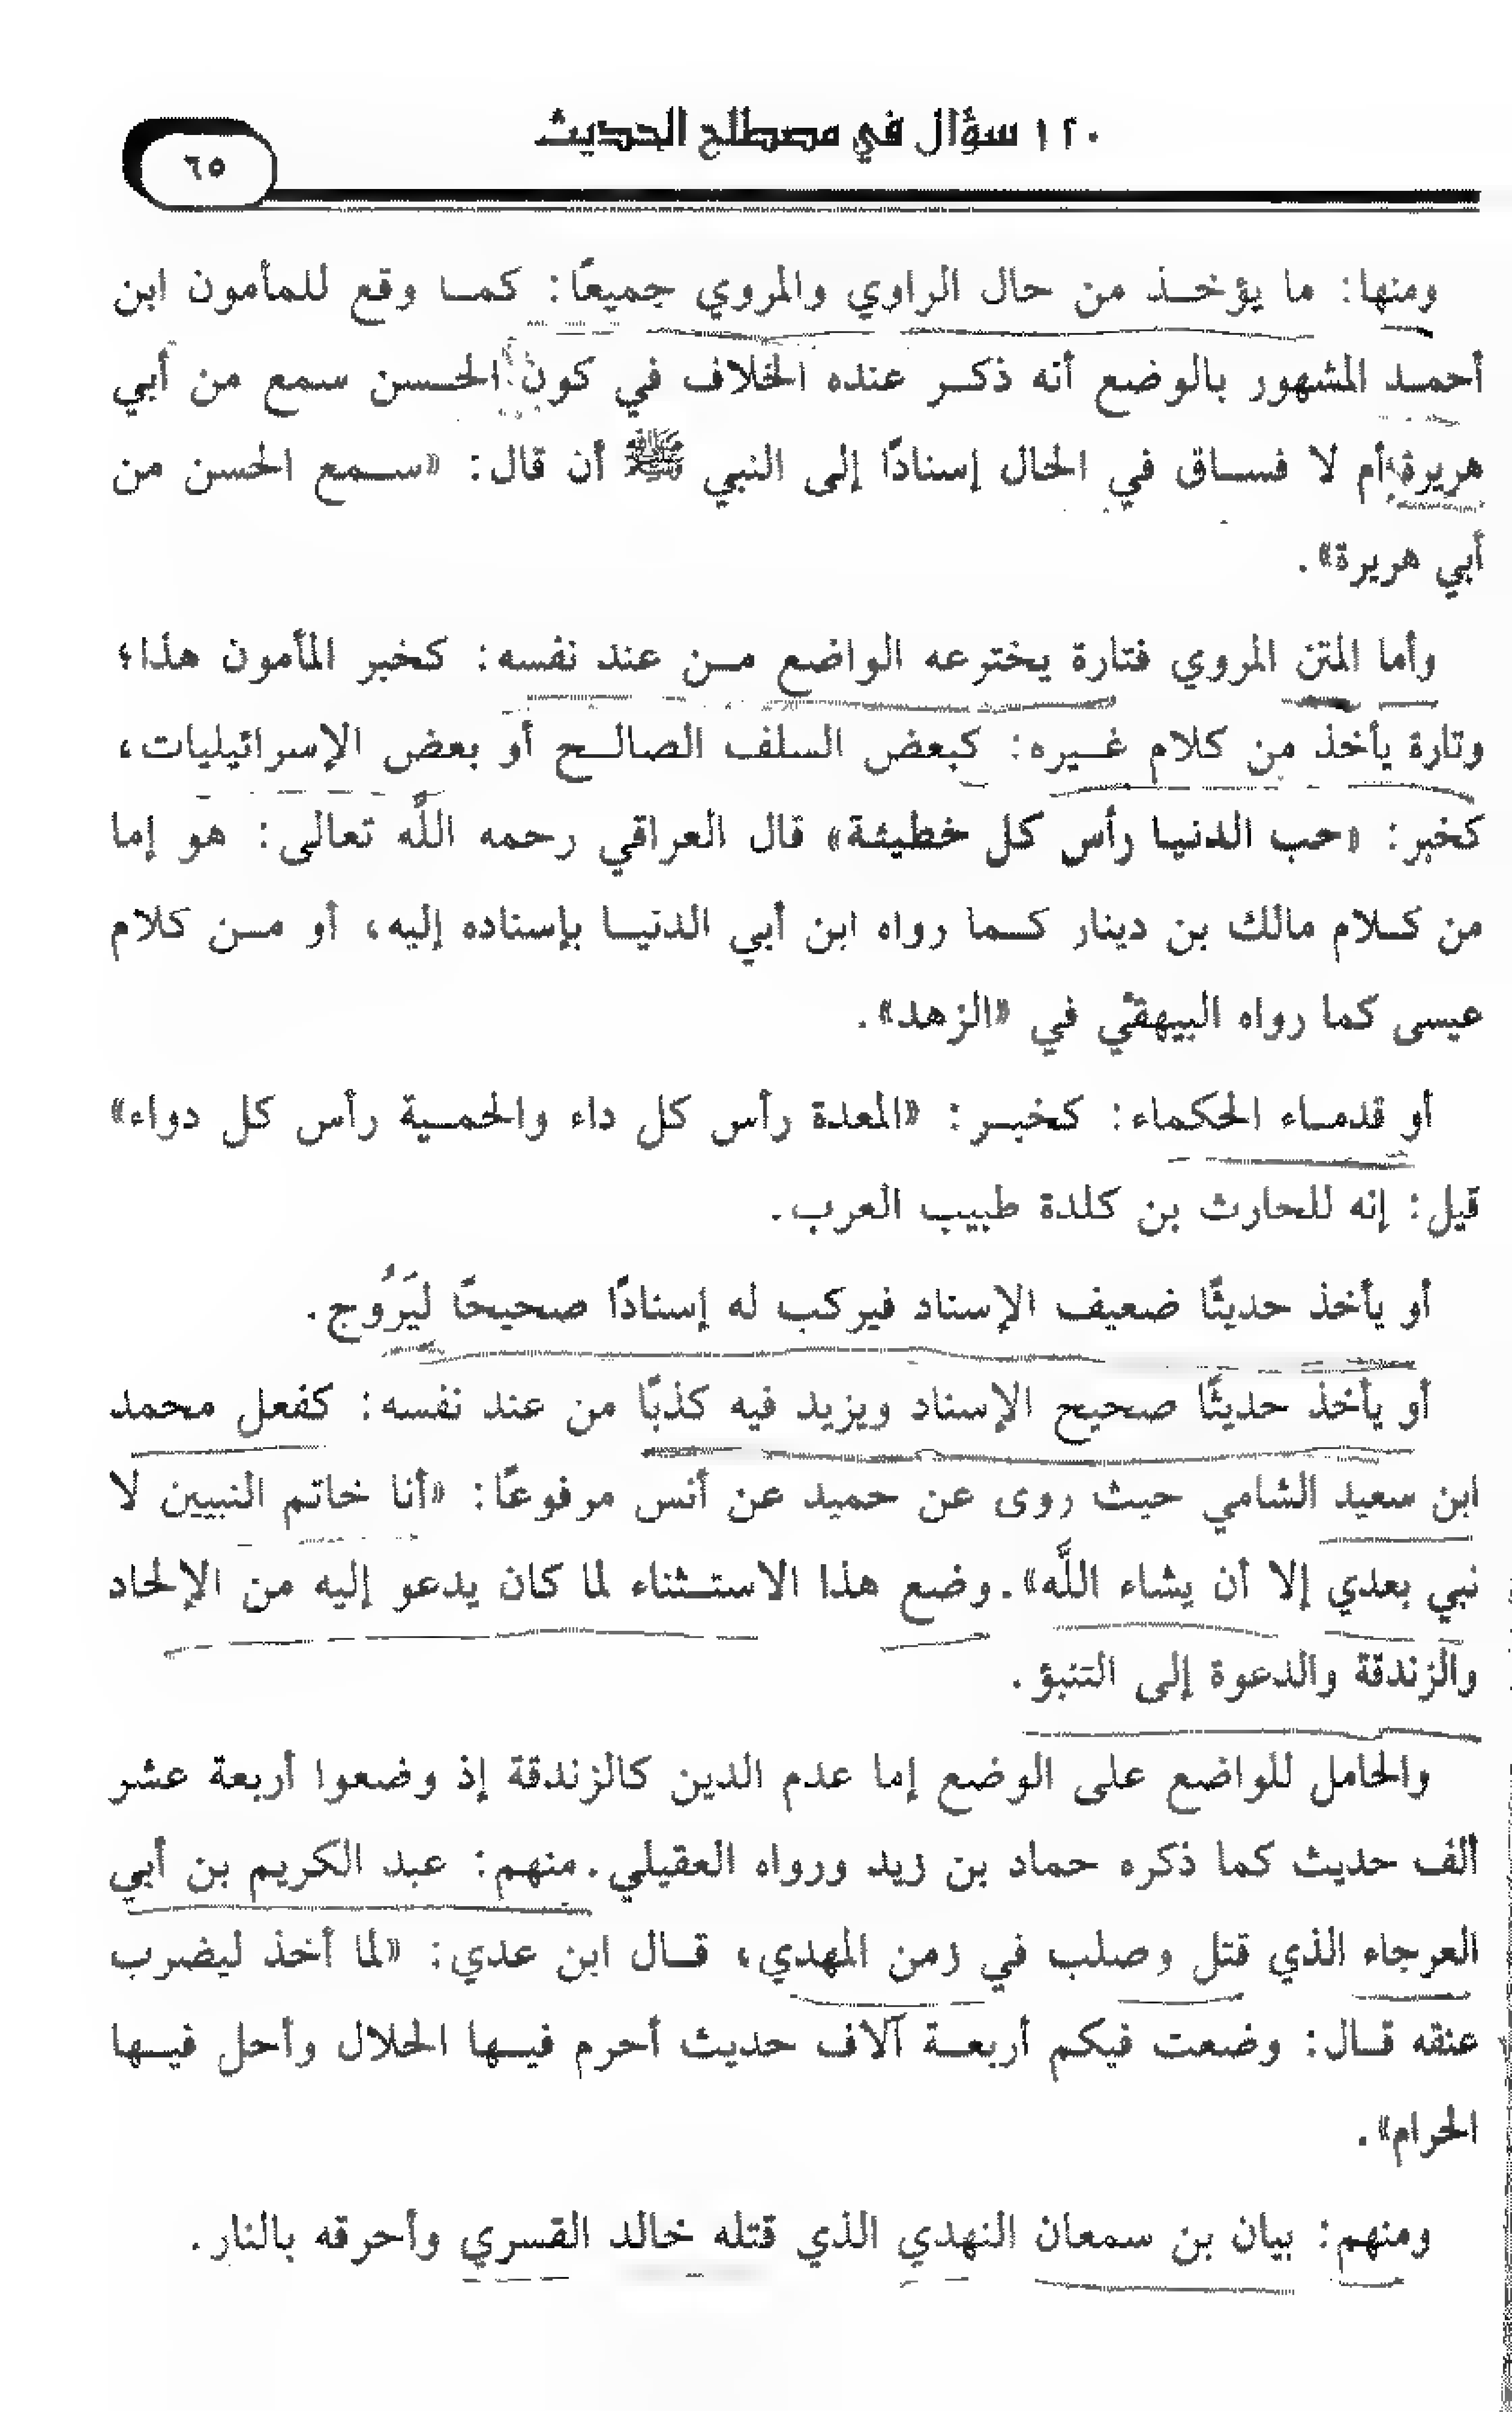 ١٢٠ سؤال في مصطلح الحديث
٦٥
ومنها: ما يؤخذ من حال الراوي والمروي جميعًا: كما وقع للمأمون ابن
أحمد المشهور بالوضع أنه ذكر عنده الخلاف في كون الحسن سمع من أبي
هريرة أم لا فساق في الحال إسنادًا إلى النبي ﷺ أن قال: «سمع الحسن من
أبي هريرة».
وأما المتن المروي فتارة يخترعه الواضع من عند نفسه: كخبر المأمون هذا؛
وتارة يأخذ من كلام غيره: كبعض السلف الصالح أو بعض الإسرائيليات،
كخبر: «حب الدنيا رأس كل خطيئة» قال العراقي رحمه اللَّه تعالى: هو إما
من كلام مالك بن دينار كما رواه ابن أبي الدنيا بإسناده إليه، أو من كلام
عيسى كما رواه البيهقي في «الزهد».
أو قدماء الحكماء: كخبر: «المعدة رأس كل داء والحمية رأس كل دواء»
قيل: إنه للحارث بن كلدة طبيب العرب.
أو يأخذ حديثًا ضعيف الإسناد فيركب له إسنادًا صحيحًا ليَرُوج.
أو يأخذ حديثًا صحيح الإسناد ويزيد فيه كذبًا من عند نفسه: كفعل محمد
ابن سعيد الشامي حيث روى عن حميد عن أنس مرفوعًا: «أنا خاتم النبيين لا
نبي بعدي إلا أن يشاء اللَّه». وضع هذا الاستثناء لما كان يدعو إليه من الإلحاد
والزندقة والدعوة إلى التنبؤ.
والحامل للواضع على الوضع إما عدم الدين كالزندقة إذ وضعوا أربعة عشر
ألف حديث كما ذكره حماد بن زيد ورواه العقيلي. منهم: عبد الكريم بن أبي
العرجاء الذي قتل وصلب في زمن المهدي، قال ابن عدي: «لما أخذ ليضرب
عنقه قال: وضعت فيكم أربعة آلاف حديث أحرم فيها الحلال وأحل فيها
الحرام».
ومنهم: بيان بن سمعان النهدي الذي قتله خالد القسري وأحرقه بالنار.